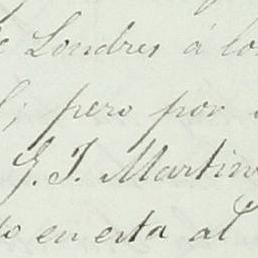 Londres á lo
; pero por
J. J. Martin
en esta al